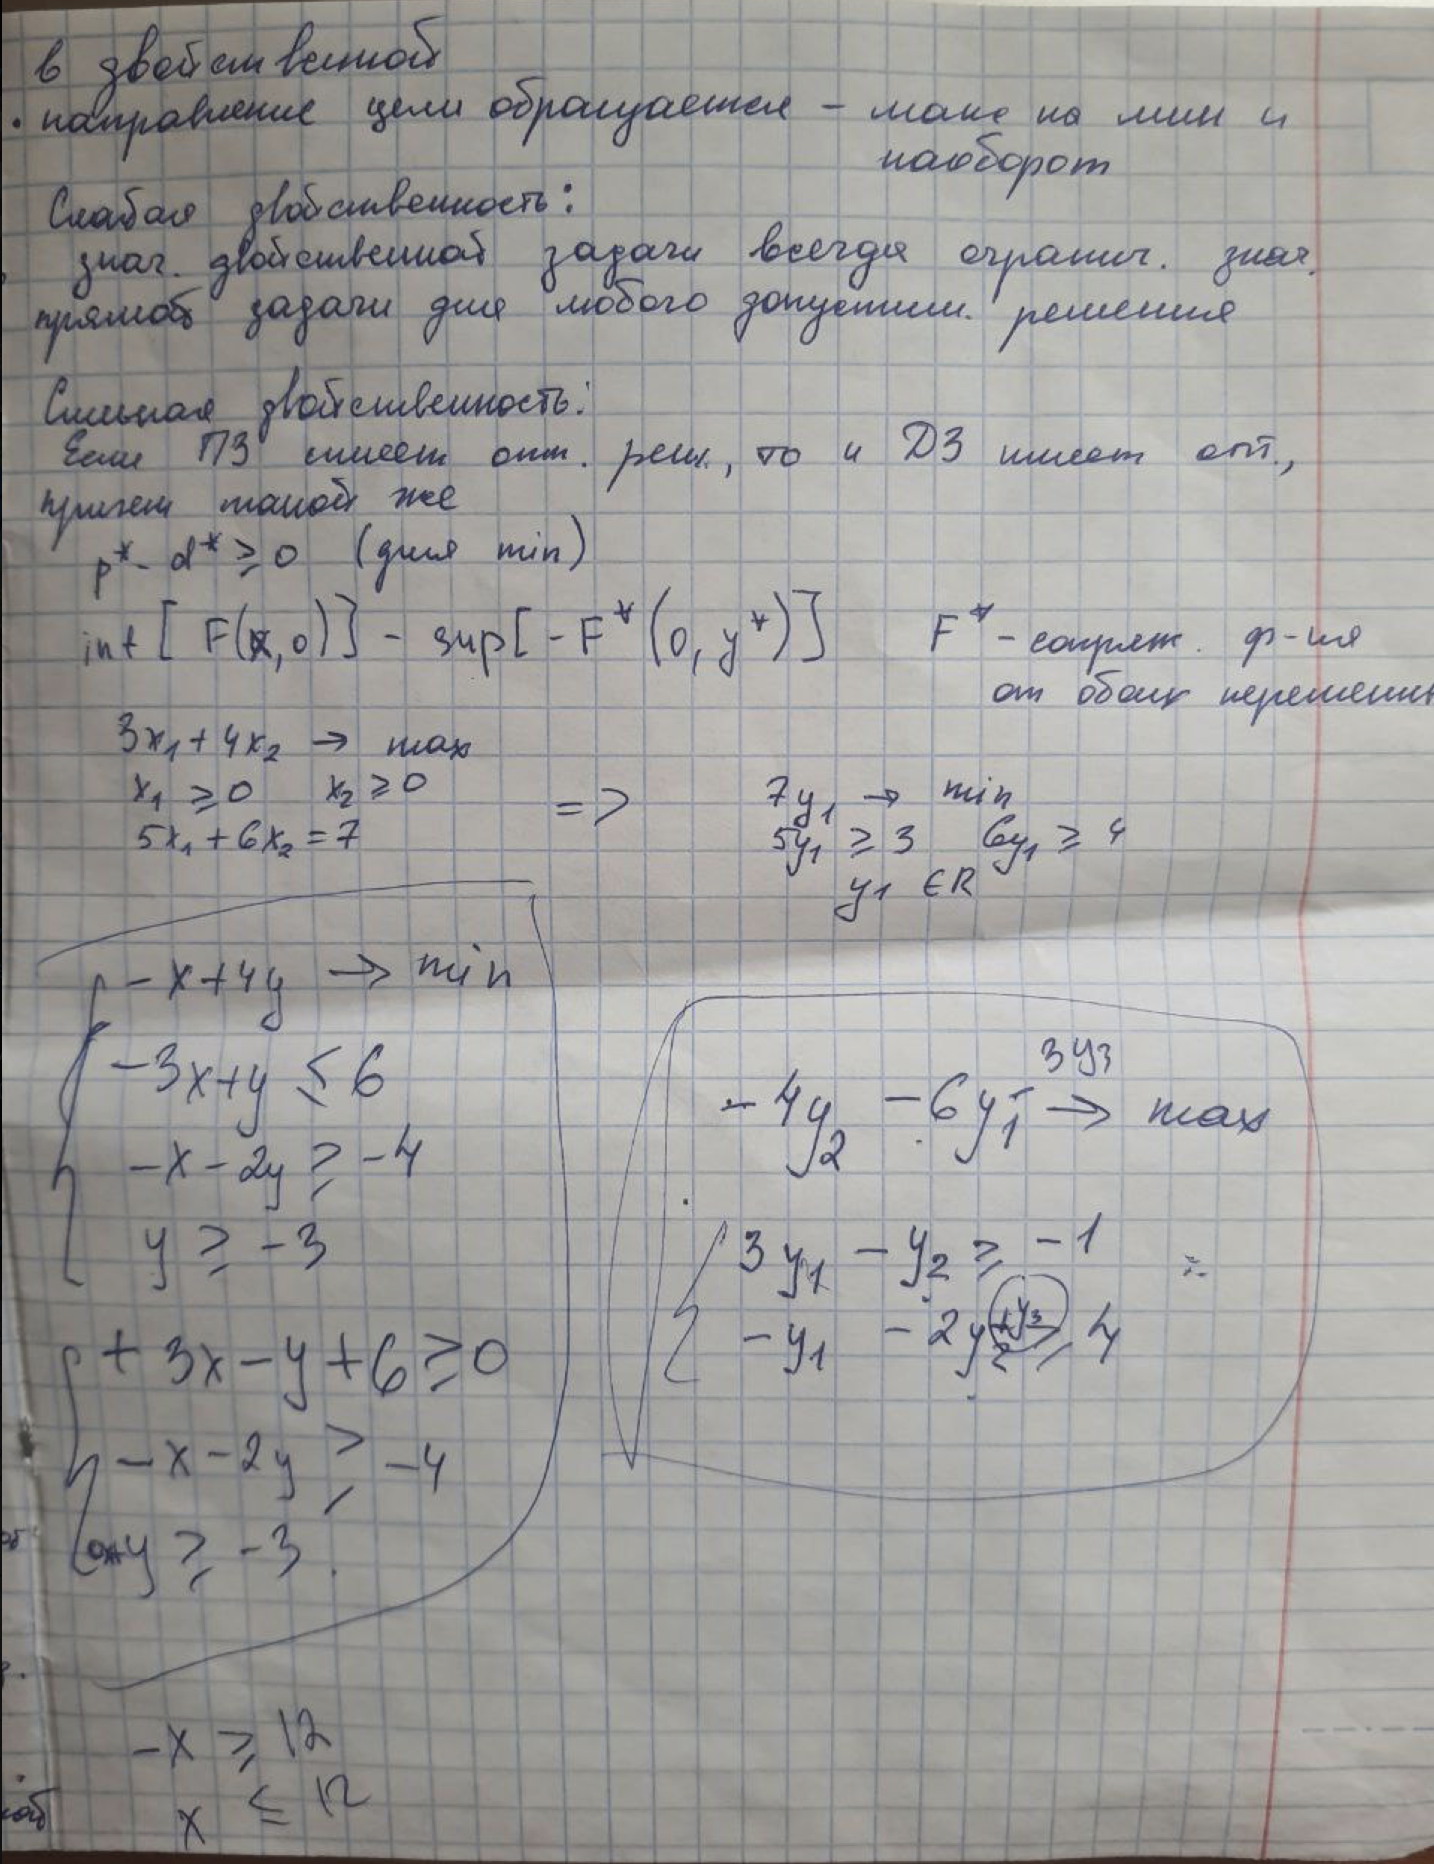 в двойственной
· направление цели обращается – макс на мин и
наоборот
Слабая двойственность:
знач. двойственной задачи всегда огранич. знач.
прямой задачи для любого допустим. решения
Сильная двойственность:
Если ПЗ имеет опт. реш., то и ДЗ имеет опт.,
причем такой же
p* - d* ≥ 0 (для min)
inf [ F(x,0)] - sup[-F*(0, y*)] F* - сопряж. ф-ия
от обоих перемен
3x₁ + 4x₂ → max
x₁ ≥ 0 x₂ ≥ 0 => 7y₁ → min
5x₁ + 6x₂ = 7 5y₁ ≥ 3 6y₁ ≥ 4
y₁ ∈ R
-x + 4y → min
-3x + y ≤ 6
3y₃
-4y₂ - 6y₁ → max
-x - 2y ≥ -4
y ≥ -3
3y₁ - y₂ ≥ -1
-y₁ - 2y₂ + y₃ ≥ 4
+ 3x - y + 6 ≥ 0
-x - 2y ≥ -4
y ≥ -3
-x ≥ 12
x ≤ 12